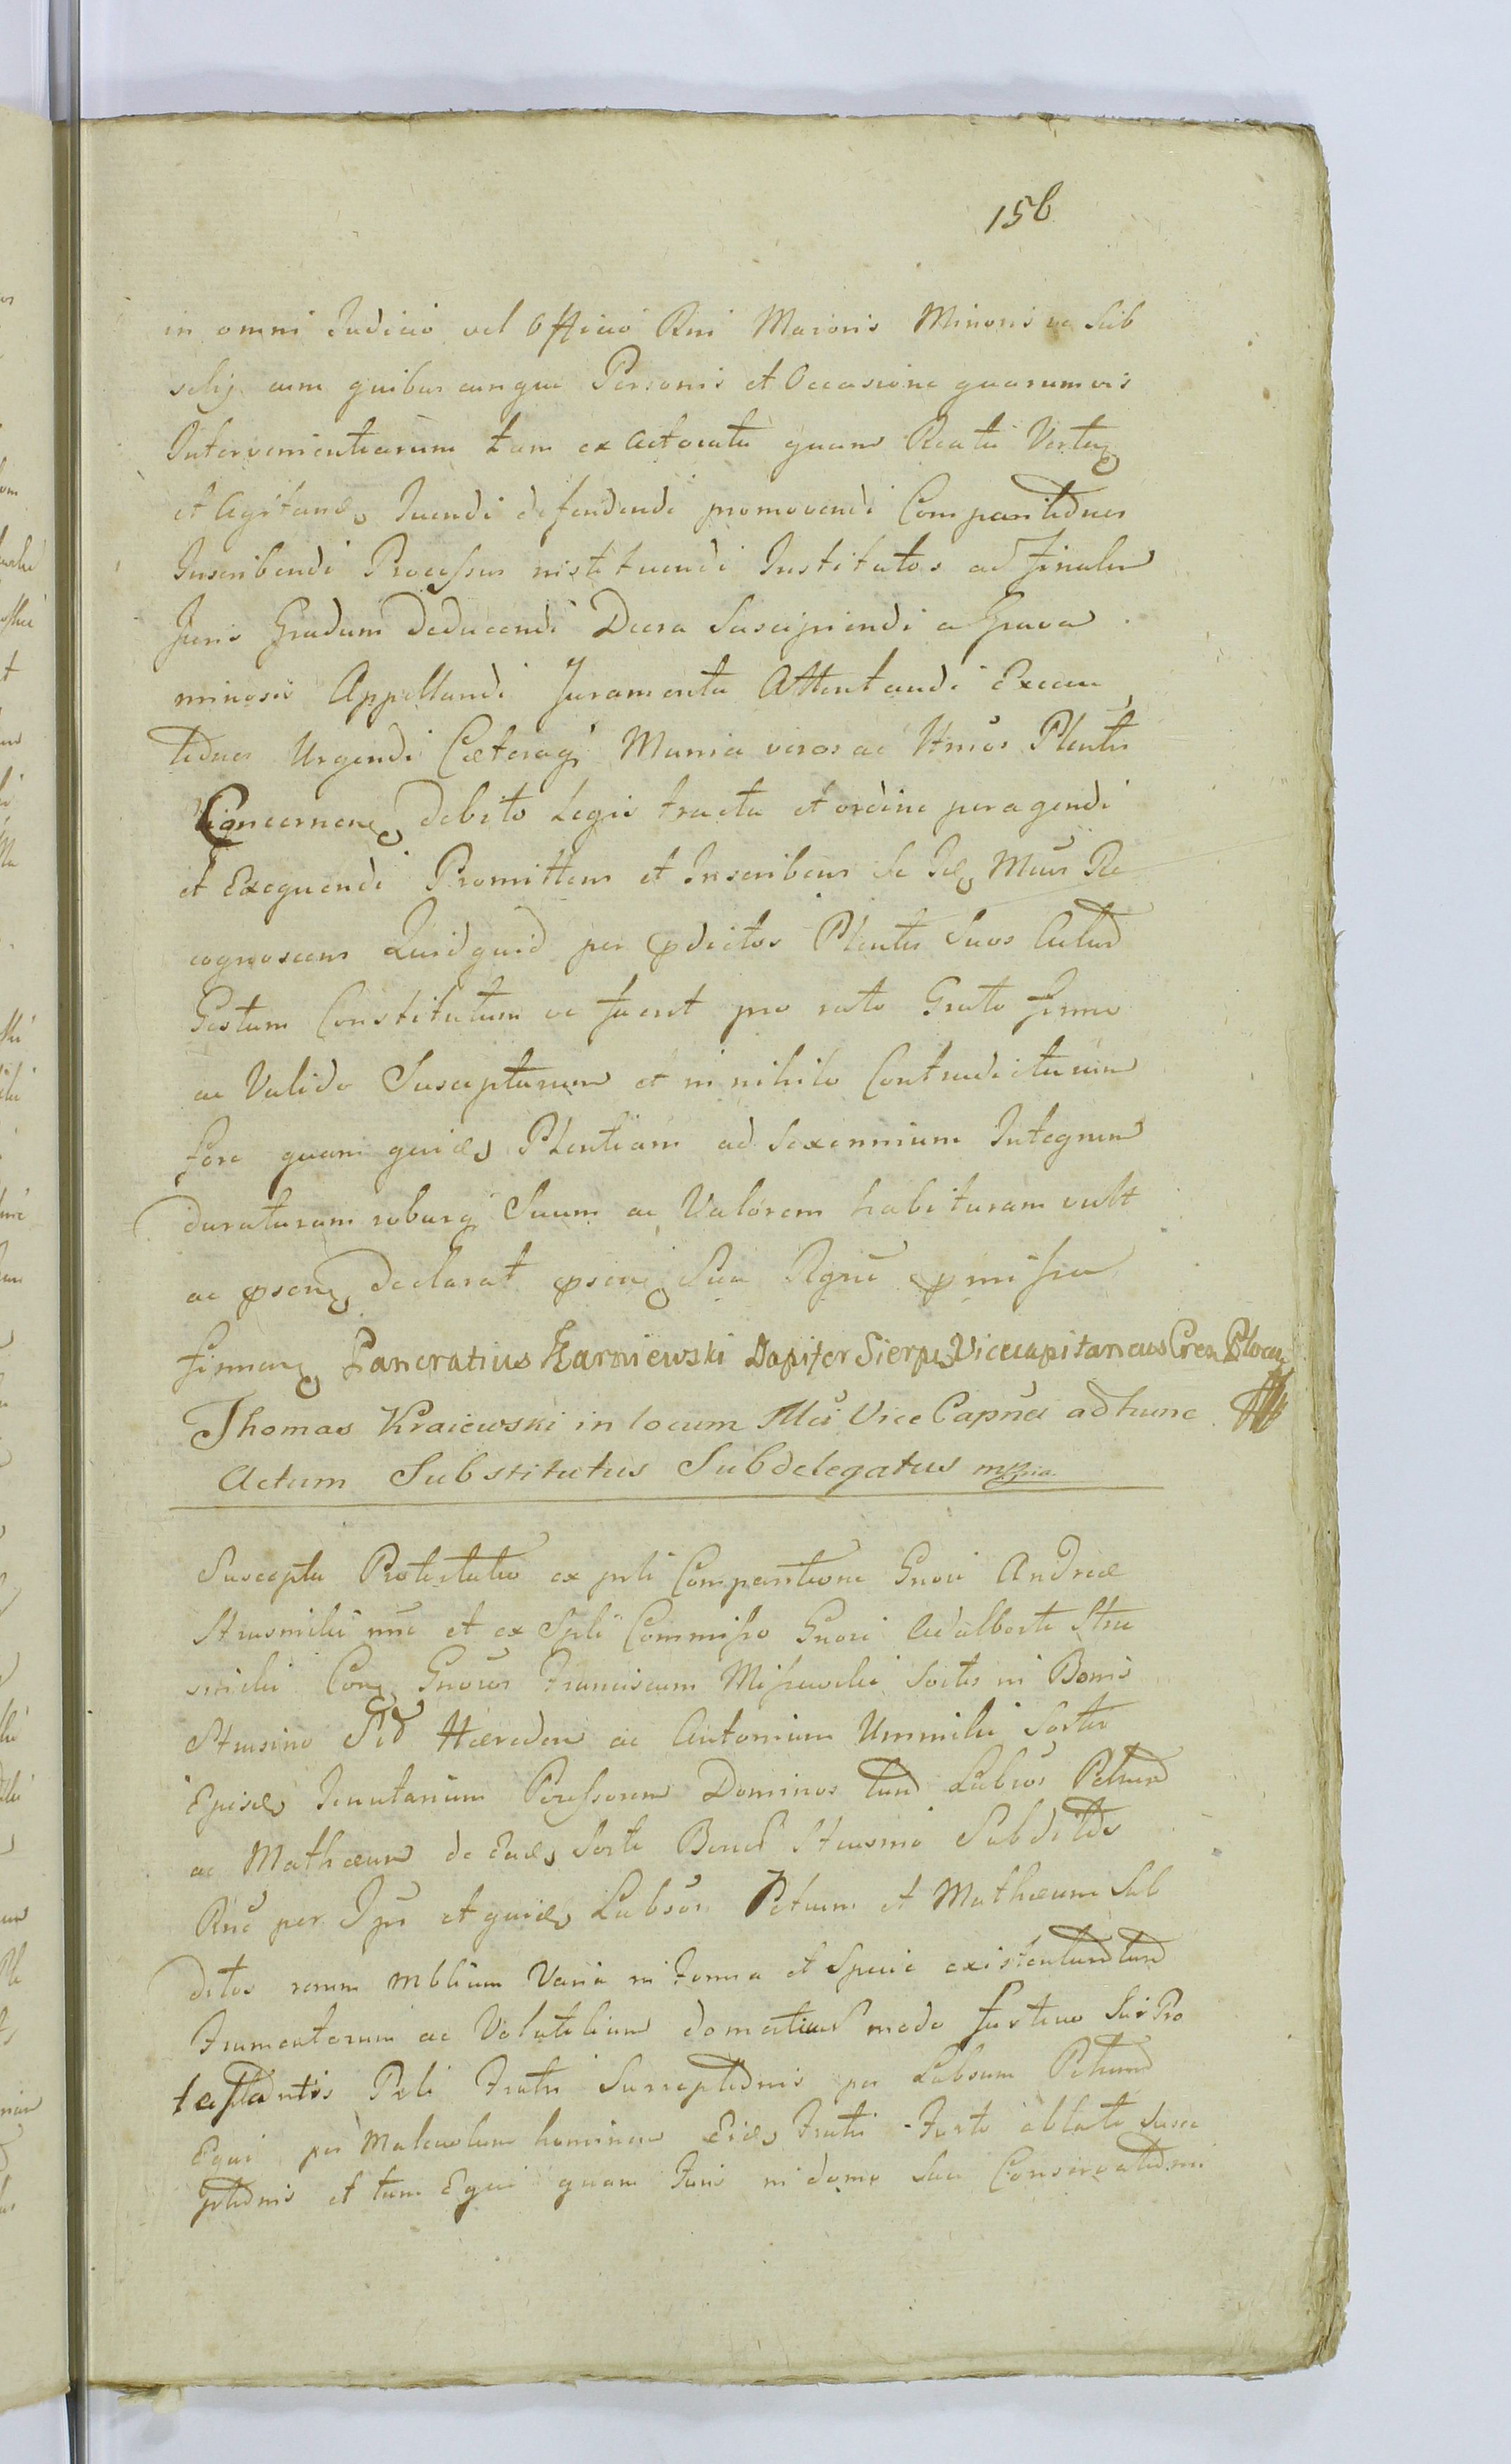 156
in omni Judicio vel Officio Rni Maioris Minoris ve Sub
selij cum quibus cunque Personis et Occasione quarumvis
Intervenientiarum tam ex Actoratu quam Reatu Verten
et Agitand Tuendi defendendi promovendi Comparitiones
Inscribendi Processus instituendi Institutos ad finalem
Juris Gradum Deducendi Decra Suscipiendi a Grava
minosis Appellandi Juramenta Attentandi Execu
tiones Urgendi Caeteraq Munia veros ac Ltmos Plentes
Concernen debito Legis tractu et ordine peragendi
et Exequendi Promittens et Inscribens se Id Mcus Re
cognoscens Quidquid per pdictos Plentes Suos Actum
Gestum Constitutum ve fuerit pro rato Grato firmo
ac Valido Suscepturum et in nihilo Contradicturum
fore quam quid Plentiam ad Sexennium Integrum
duraturam roburq Suum ac Valorem habituram vult
ac psen declarat psen Sua Rgne pmissa
firman Pancratius Karniewski Dapifer Sierp Vicecapitaneus Cren Plocen
Thomas Kraiewski in locum Mci Vice Capnei ad hunc
Actum Substitutus Subdelegatus mppia
Suscepta Protestatio ex psli Comparitione Gnosi Andreae
nne et ex Spli Commisso Gnosi Adalberti Stru
Con Gnosos Franciscum sortis in Bonis
Strusino Haeredem ac Antonium sortis
Tenutarium Possessorem Dominos tum Labsos Petrum
ac Mathaeum de sorte Bonor Strusino Subditos
Rne per Ipsos et quid Labsos Petrum et Mathaeum Sub
ditos rerum mblium Varia in forma et Specie existentium tum
Frumentorum ac Volatilium domesticor modo furtivo Sui Pro
testantis Psli Fratri Surreptionis per Labsum Petrum
Equi per Malevolum hominem Fratri Furto ablati Susce
ptionis et tam Equi quam Furis in domo Sua Conservationis